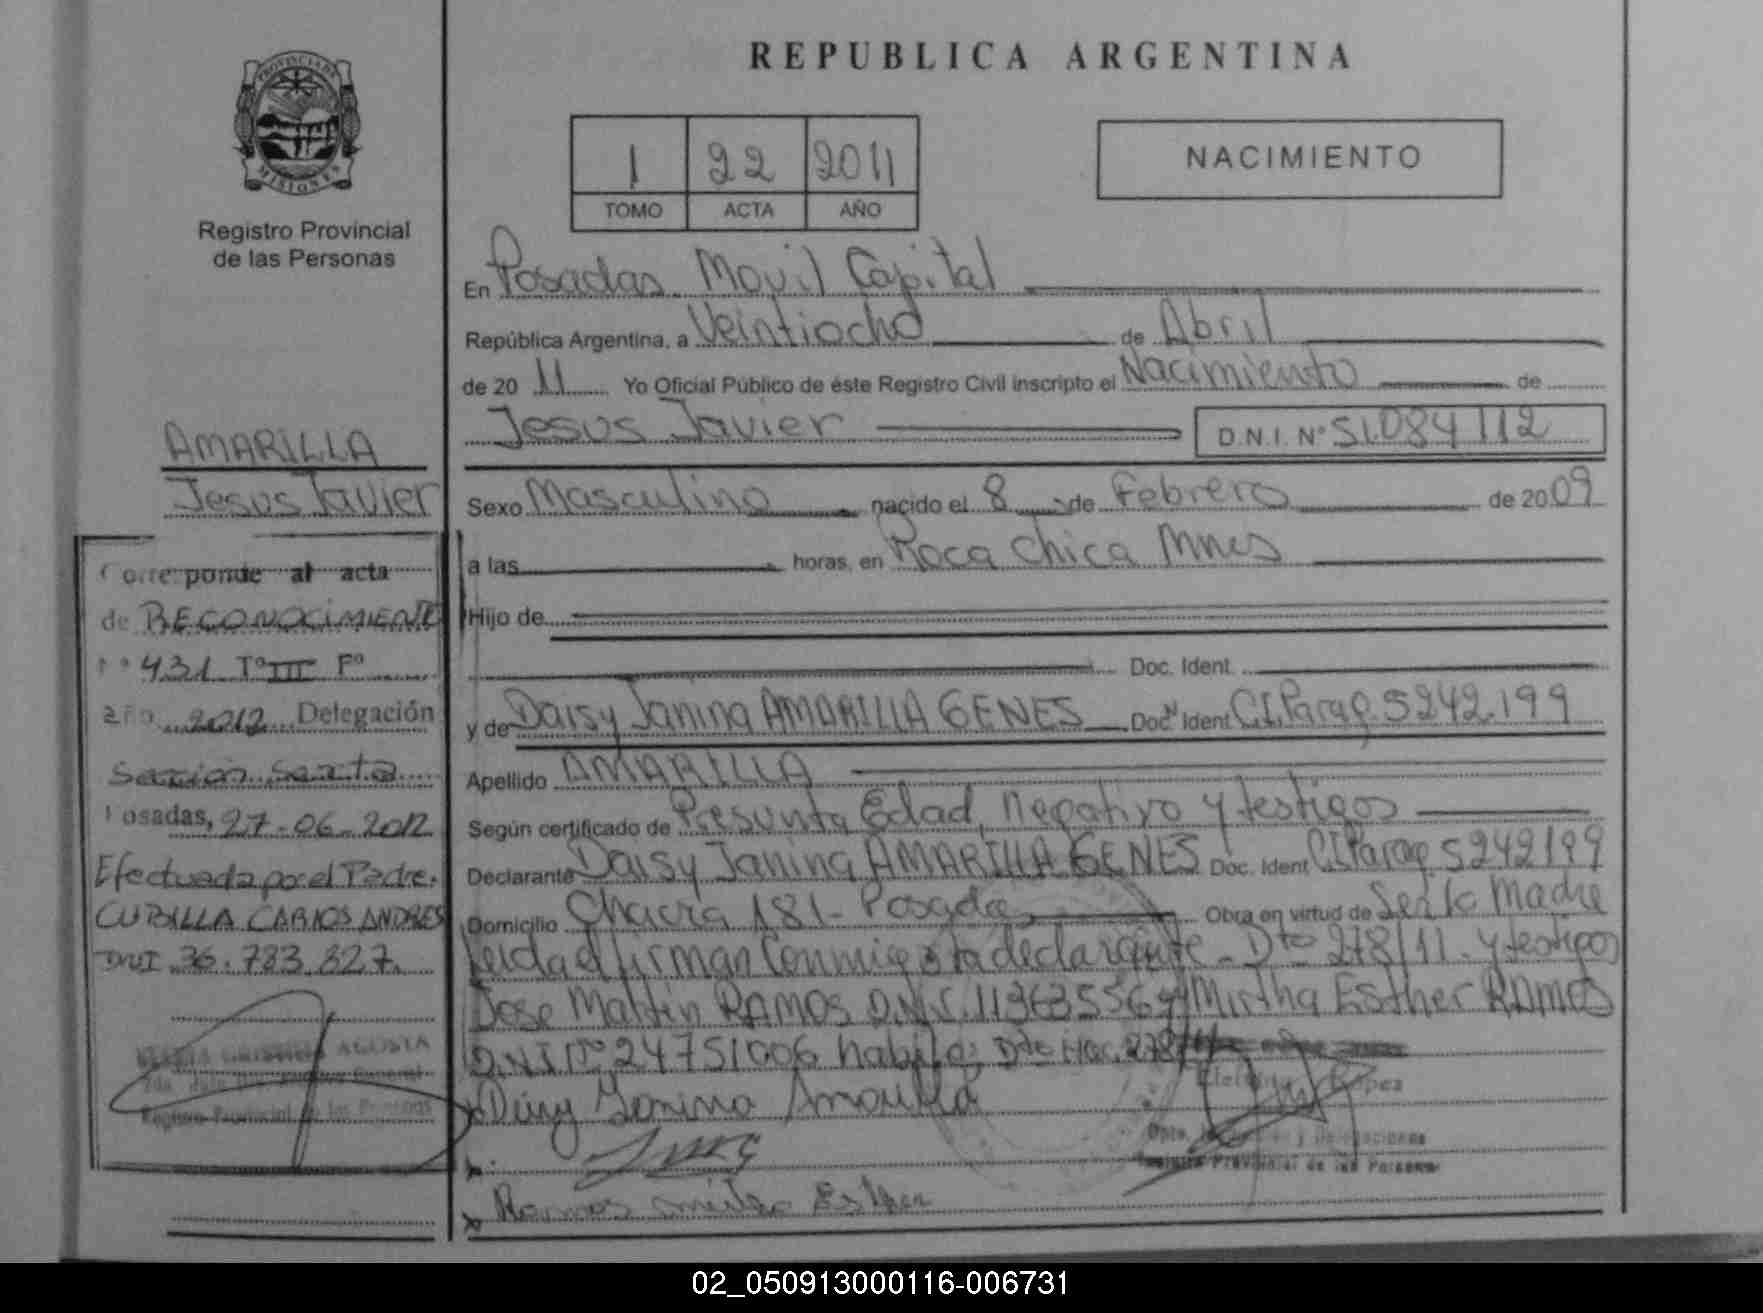 REPUBLICA ARGENTINA
PROVINCIA DE
MISIONES
Registro Provincial
de las Personas
1 22 2011
TOMO ACTA AÑO
NACIMIENTO
En Posadas Movil Capital
República Argentina, a Veintiocho de Abril
de 20 11 Yo Oficial Público de éste Registro Civil inscripto el Nacimiento de
Jesus Javier D.N.I. Nº 51.084112
AMARILLA
Jesus Javier
Sexo Masculino nacido el 8 de Febrero de 20 09
a las horas, en Roca Chica Mnes
Hijo de
Doc. Ident.
y de Daisy Janina AMARILLA GENES Doc. Ident C.I.Parag. 5242.199
Apellido AMARILLA
Según certificado de Presunta Edad, Negativo y testigos
Declarante Daisy Janina AMARILLA GENES Doc. Ident C.I.Parag 5242199
Domicilio Chacra 181- Posadas Obra en virtud de Ser la Madre
Leida el firman Conmigo la declarante - Dto 278/11. y testigos
Jose Martin RAMOS D.N.I. 11363556 y Mirtha Esther RAMOS
D.N.I Nº 24751006 habilo: Dto Hac. 278/11
Daisy Janina Amarilla
Ramos Esther
Lopez
Dpto. y Delegaciones
Registro Provincial de las Personas
Corresponde al acta
de RECONOCIMIENTO
Nº 431 Tº III Fº
año 2012 Delegación
Sección Sexta
Posadas, 27-06-2012
Efectuada por el Padre.
CUBILLA CARLOS ANDRES
DNI 36.783.827.
MARIA CRISTINA ACOSTA
Registro Provincial de las Personas
02_050913000116-006731